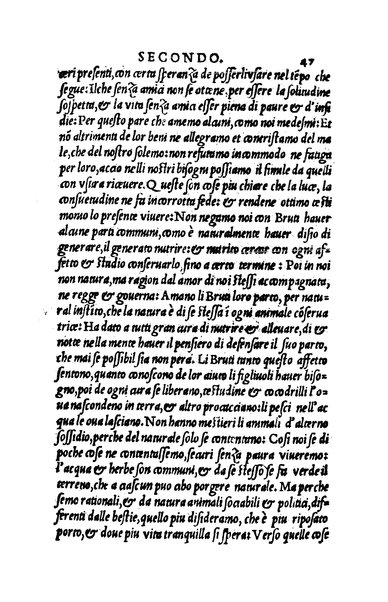 SECONDO. 47
æri presenti, con certa speranza de posserl'usare nel tẽpo che
segue: Ilche senza amici non se ottene, per essere la solitudine
sospetta, & la vita senza amici esser piena di paure & d'insi
die: Per questo pare che amemo alcuni, como noi medesmi: Et
nõ altrimenti de lor beni ne allegramo et contristamo del ma
le, che del nostro solemo: non refutamo incommodo ne fatiga
per loro, accao nelli nostri bisogni possiamo il simile da quelli
con vsura riceuere. Queste son cose piu chiare che la luce, la
consuetudine ne fa incorrotta fede: & rendene ottimo testi
monio lo presente viuere: Non negamo noi con Bruti hauer
alcune parti communi, como è naturalmente hauer disio di
generare, il generato nutrire: & nutrito cercar con ogni af-
fetto & studio conseruarlo, fino a certo termine: Poi in noi
non natura, ma ragion dal amor di noi stessi accompagnata,
ne regge & gouerna: Amano li Bruti loro parto, per natu-
ral instito, che la natura è di se stessa i ogni animale cõserua
trice: Ha dato a tutti gran cura di nutrire & alleuare, di &
notte nella mente hauer il pensiero di defensare il suo parto,
che mai se possibil sia non pera. Li Bruti tanto questo affetto
sentono, quanto conoscono de lor aiuto li figliuoli hauer biso-
gno, poi de ogni cura se liberano, testudine & cocodrilli l'o-
ua nascondeno in terra, & altro procacciano: li pesci nell'ac
qua le oua lasciano. Non hanno mestieri li animali d'alterno
sossidio, perche del naturale solo se contentano: Cosi noi se di
poche cose ne contentassemo, securi senza paura viueremo:
l'acqua & herbe son communi, & da se stesso se fa verde il
terreno, che a ciascun puo abo porgere naturale. Ma perche
semo rationali, & da natura animali sociabili & politici, dif-
ferenti dalle bestie, quello piu disideramo, che è piu riposato
porto, & doue piu vita tranquilla si spera: Verso quelle cose